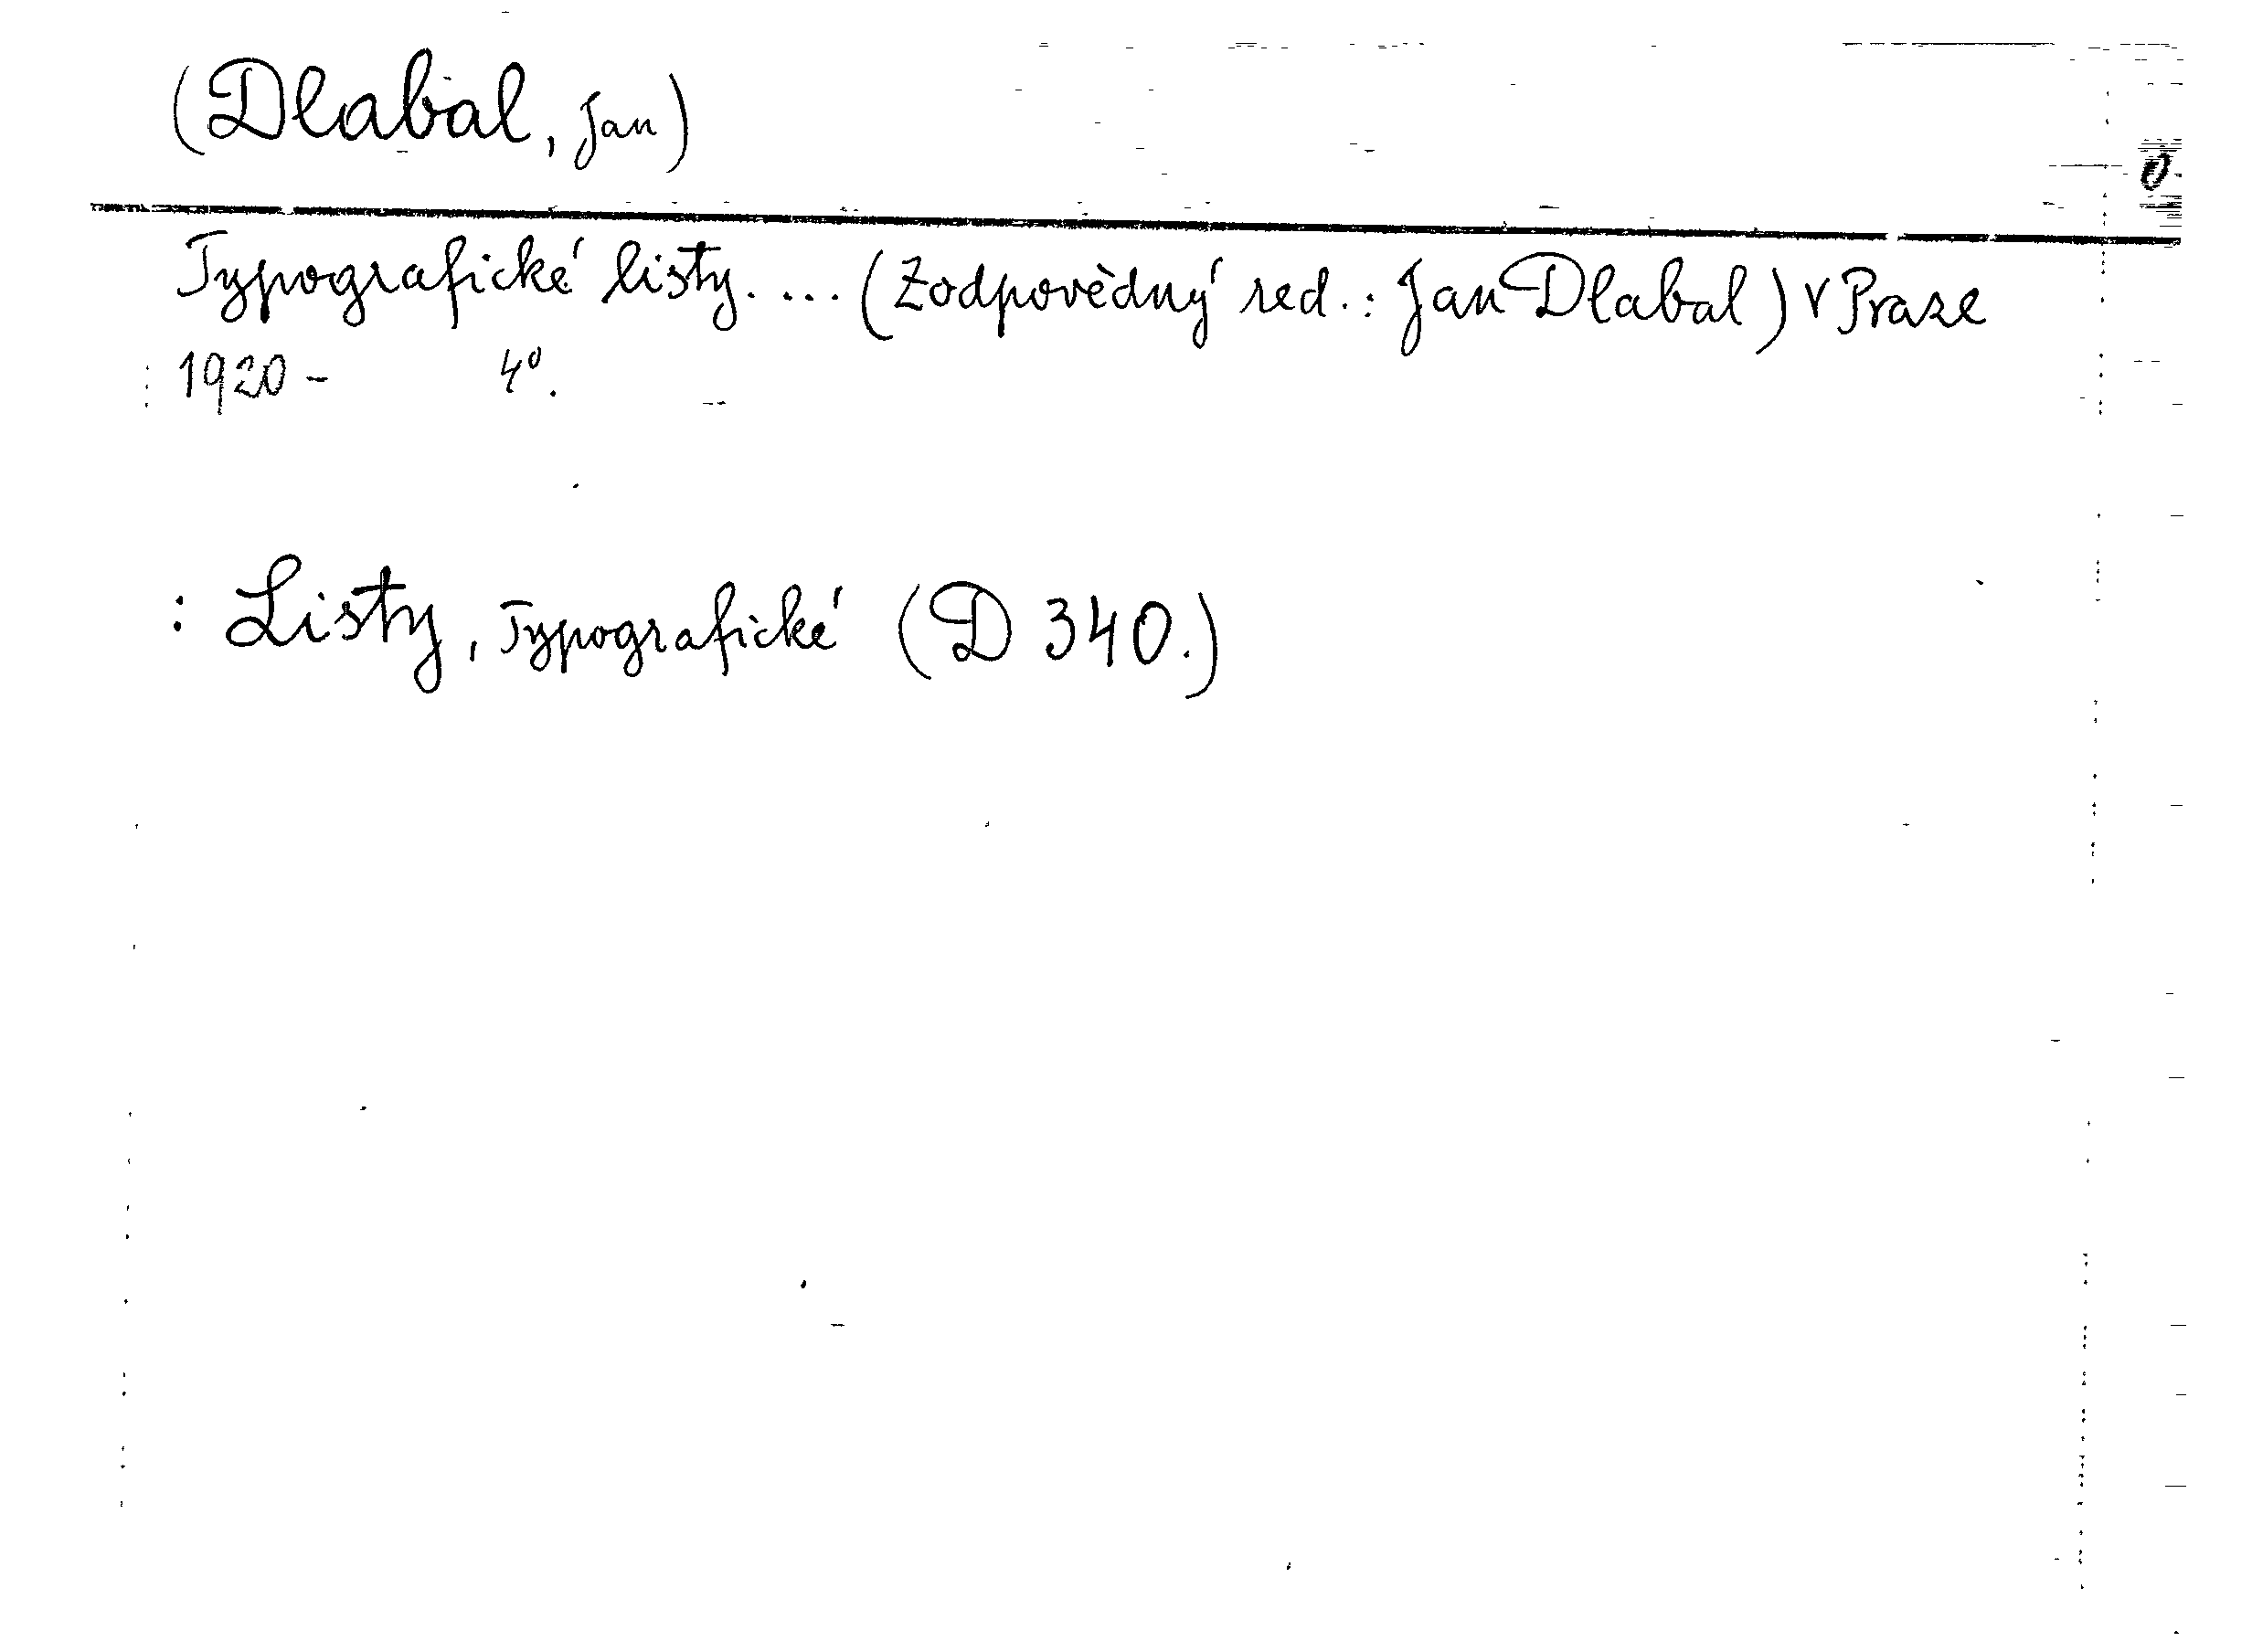 (Dlabal, Jan)
Typografické listy. ... (Zodpovědný red.: Jan Dlabal) v Praze
1920 - 4°.
: Listy, Typografické (D 340.)